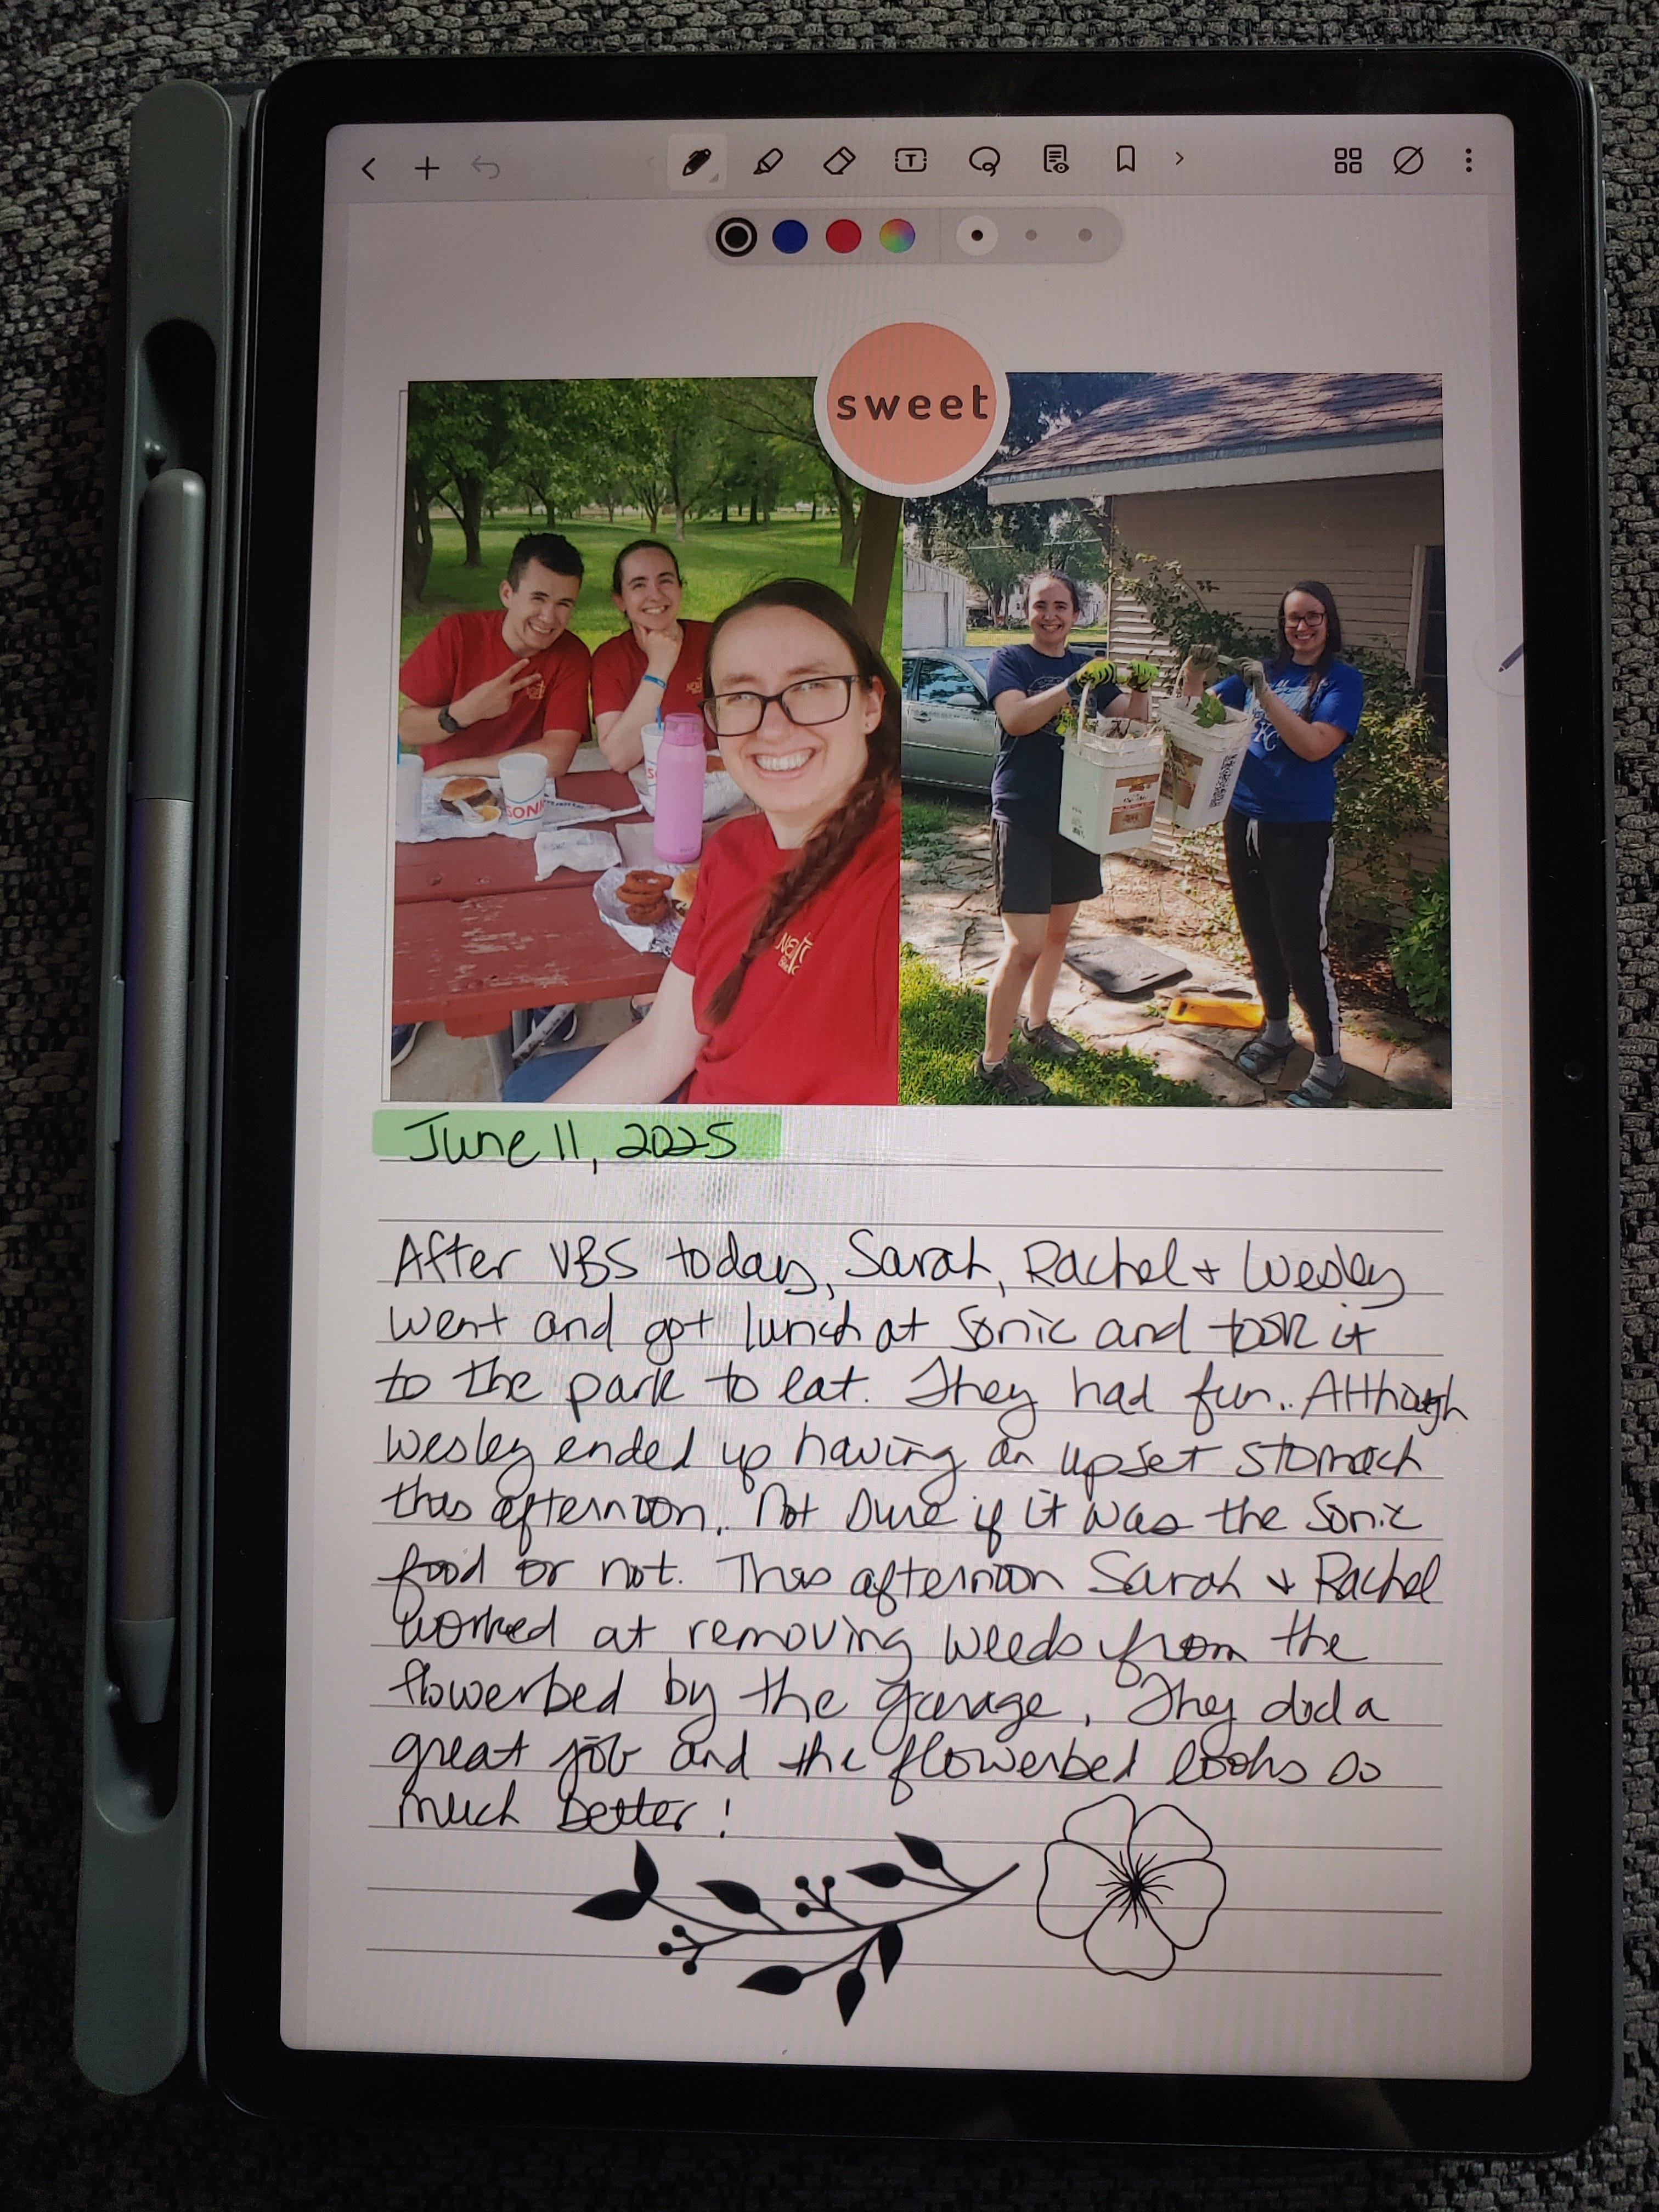 sweet
SONIC
June 11, 2025
After VBS today, Sarah, Rachel + Wesley
went and got lunch at Sonic and took it
to the park to eat. They had fun.. Although
Wesley ended up having an upset stomach
this afternoon. Not sure if it was the Sonic
food or not. This afternoon Sarah + Rachel
worked at removing weeds from the
flowerbed by the garage. They did a
great job and the flowerbed looks so
much better!